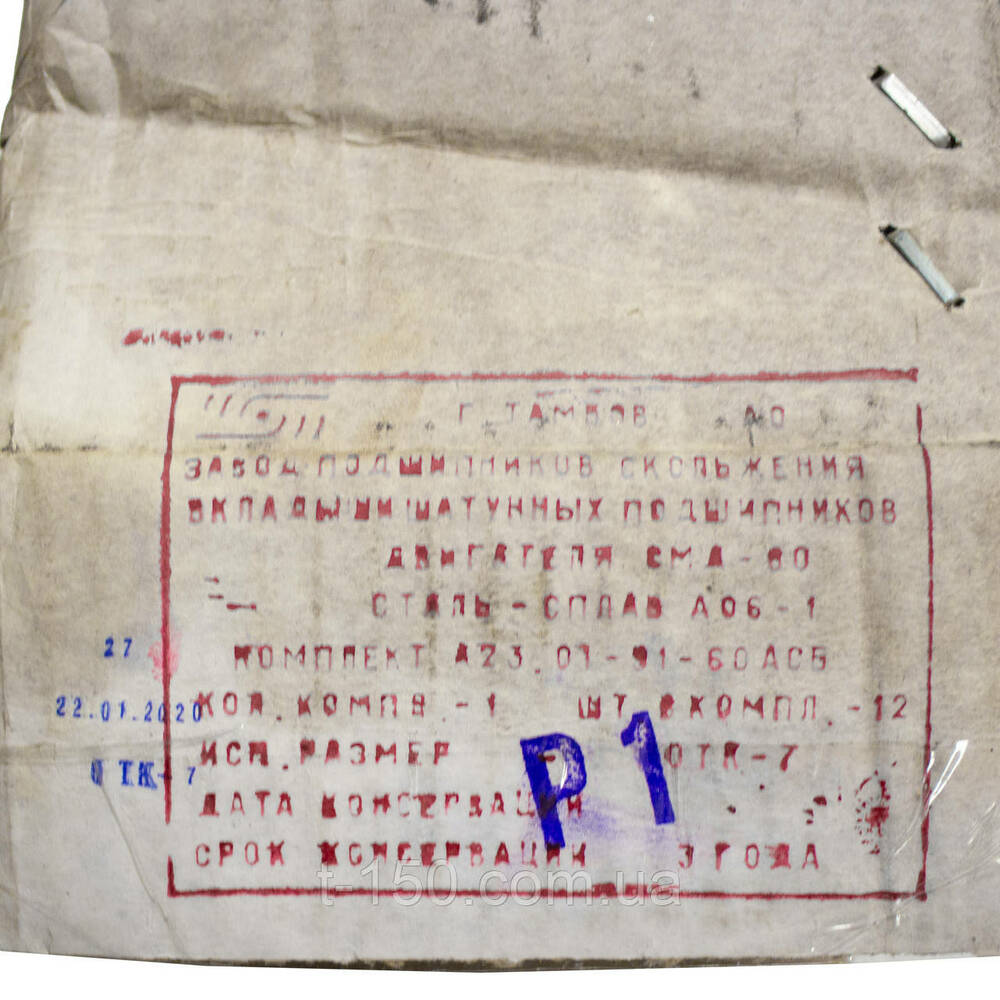 Г. ТАМБОВ АО
ЗАВОД ПОДШИПНИКОВ СКОЛЬЖЕНИЯ
ВКЛАДЫШИ ШАТУННЫХ ПОДШИПНИКОВ
ДВИГАТЕЛЯ СМД-60
СТАЛЬ-СПЛАВ А06-1
27
КОМПЛЕКТ А23.01-91-60АСБ
22.01.2020
КОЛ. КОМПЛ. -1 ШТ. ВКОМПЛ. -12
ИСП. РАЗМЕР - ОТК-7
Р1
ОТК-7
ДАТА КОНСЕРВАЦИИ
СРОК КОНСЕРВАЦИИ 3 ГОДА
t-150.com.ua